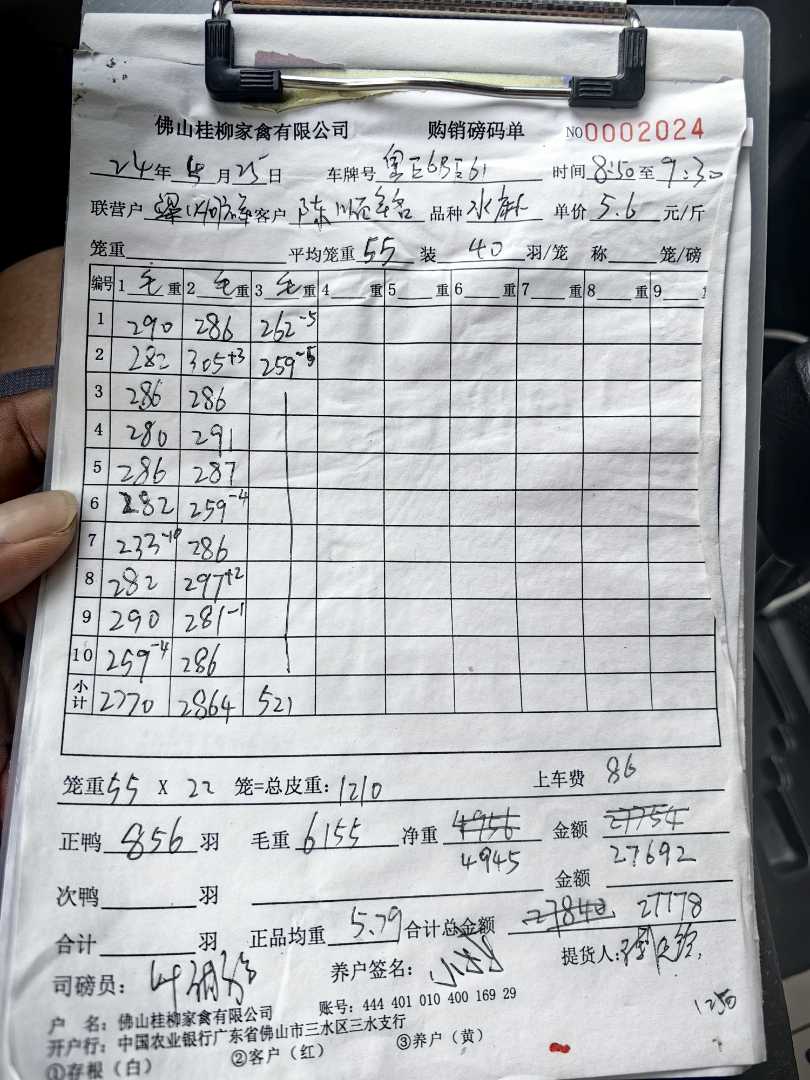 佛山桂柳家禽有限公司 购销磅码单 NO0002024
24年 5月25日 车牌号 时间8:50至9:30
联营户 客户 陈顺 品种 水 单价 5.6 元/斤
笼重 平均笼重 55 装 40 羽/笼 称 笼/磅
编号 1 毛 重 2 毛 重 3 毛 重 4 重 5 重 6 重 7 重 8 重 9
1 290 286 262-5
2 282 305+3 259-5
3 286 286
4 280 291
5 286 287
6 282 259-4
7 233-10 286
8 282 297+2
9 290 281-1
10 259-4 286
小计 2770 2864 521
笼重55 X 22 笼=总皮重:1210 上车费 86
正鸭 856 羽 毛重 6155 净重 4956 金额 27754
4945 27692
次鸭 羽 金额
合计 羽 正品均重 5.79 合计总金额 27840 27778
司磅员: 叶 养户签名: 提货人:
1250
户 名:佛山桂柳家禽有限公司 账号:444 401 010 400 169 29
开户行:中国农业银行广东省佛山市三水区三水支行
①存根(白) ②客户(红) ③养户(黄)